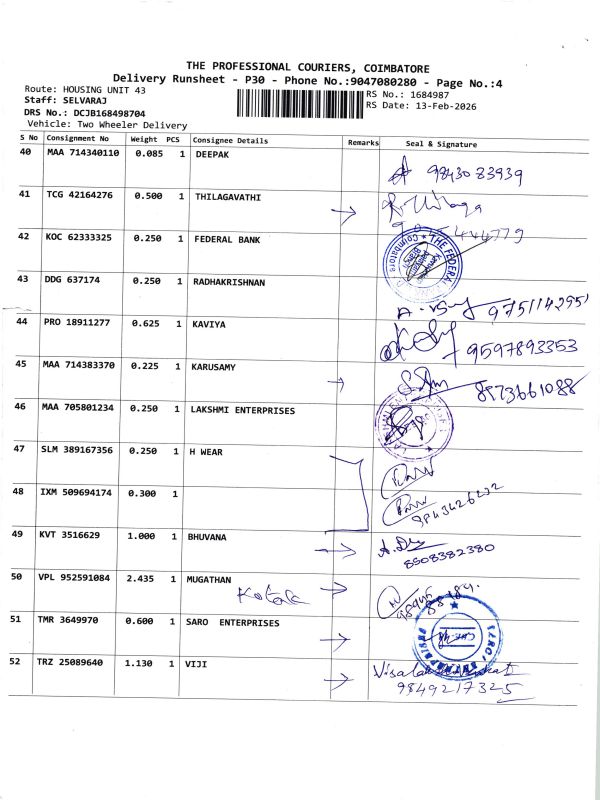 THE PROFESSIONAL COURIERS, COIMBATORE
Delivery Runsheet - P30 - Phone No.:9047080280 - Page No.:4
Route: HOUSING UNIT 43
Staff: SELVARAJ
DRS No.: DCJB168498704
Vehicle: Two Wheeler Delivery
RS No.: 1684987
RS Date: 13-Feb-2026
S No Consignment No Weight PCS Consignee Details Remarks Seal & Signature
40 MAA 714340110 0.085 1 DEEPAK 9843083939
41 TCG 42164276 0.500 1 THILAGAVATHI
42 KOC 62333325 0.250 1 FEDERAL BANK
THE FEDERAL
Coimbatore
43 DDG 637174 0.250 1 RADHAKRISHNAN 9751142951
44 PRO 18911277 0.625 1 KAVIYA 9597893353
45 MAA 714383370 0.225 1 KARUSAMY 8973661088
46 MAA 705801234 0.250 1 LAKSHMI ENTERPRISES
47 SLM 389167356 0.250 1 H WEAR
48 IXM 509694174 0.300 1
49 KVT 3516629 1.000 1 BHUVANA 8508382380
50 VPL 952591084 2.435 1 MUGATHAN
Kotak
51 TMR 3649970 0.600 1 SARO ENTERPRISES
52 TRZ 25089640 1.130 1 VIJI
9849217325